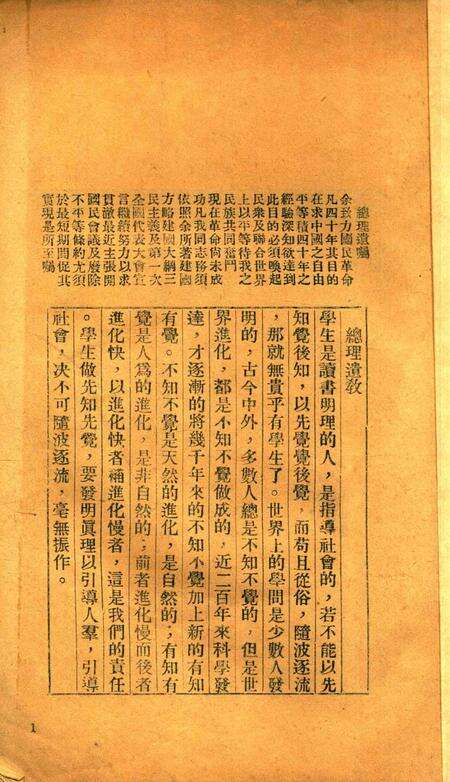 總理遺囑
余致力國民革命
凡四十年其目的
在求中國之自由
平等積四十年之
經驗深知欲達到
此目的必須喚起
民衆及聯合世界
上以平等待我之
民族共同奮鬥
現在革命尚未成
功凡我同志務須
依照余所著建國
方略建國大綱三
民主義及第一次
全國代表大會宣
言繼續努力以求
貫澈最近主張開
國民會議及廢除
不平等條約尤須
於最短期間促其
實現是所至囑
總理遺教
學生是讀書明理的人，是指導社會的，若不能以先
知覺後知，以先覺覺後覺，而苟且從俗，隨波逐流
，那就無貴乎有學生了。世界上的學問是少數人發
明的，古今中外，多數人總是不知不覺的，但是世
界進化，都是不知不覺做成的，近二百年來科學發
達，才逐漸的將幾千年來的不知不覺加上新的有知
有覺。不知不覺是天然的進化，是自然的；有知有
覺是人爲的進化，是非自然的；前者進化慢而後者
進化快，以進化快者補進化慢者，這是我們的責任
。學生做先知先覺，要發明眞理以引導人羣，引導
社會，决不可隨波逐流，毫無振作。
1